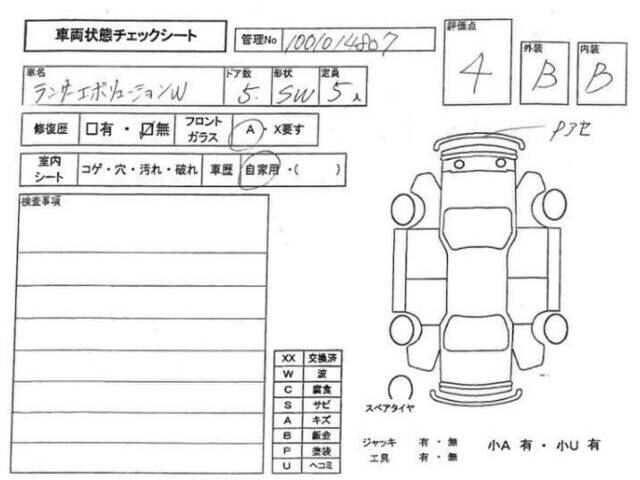 車両状態チェックシート
管理No 1001014807
評価点 4
外装 B
内装 B
車名 ランサーエボリューションW
ドア数 5.
形状 SW
定員 5人
修復歴 □有・☑無
フロントガラス A・X要す
室内シート コゲ・穴・汚れ・破れ
車歴 自家用・( )
検査事項
Pアセ
XX 交換済
W 波
C 腐食
S サビ
A キズ
B 鈑金
P 塗装
U ヘコミ
スペアタイヤ
ジャッキ 有・無
工具 有・無
小A 有・小U 有